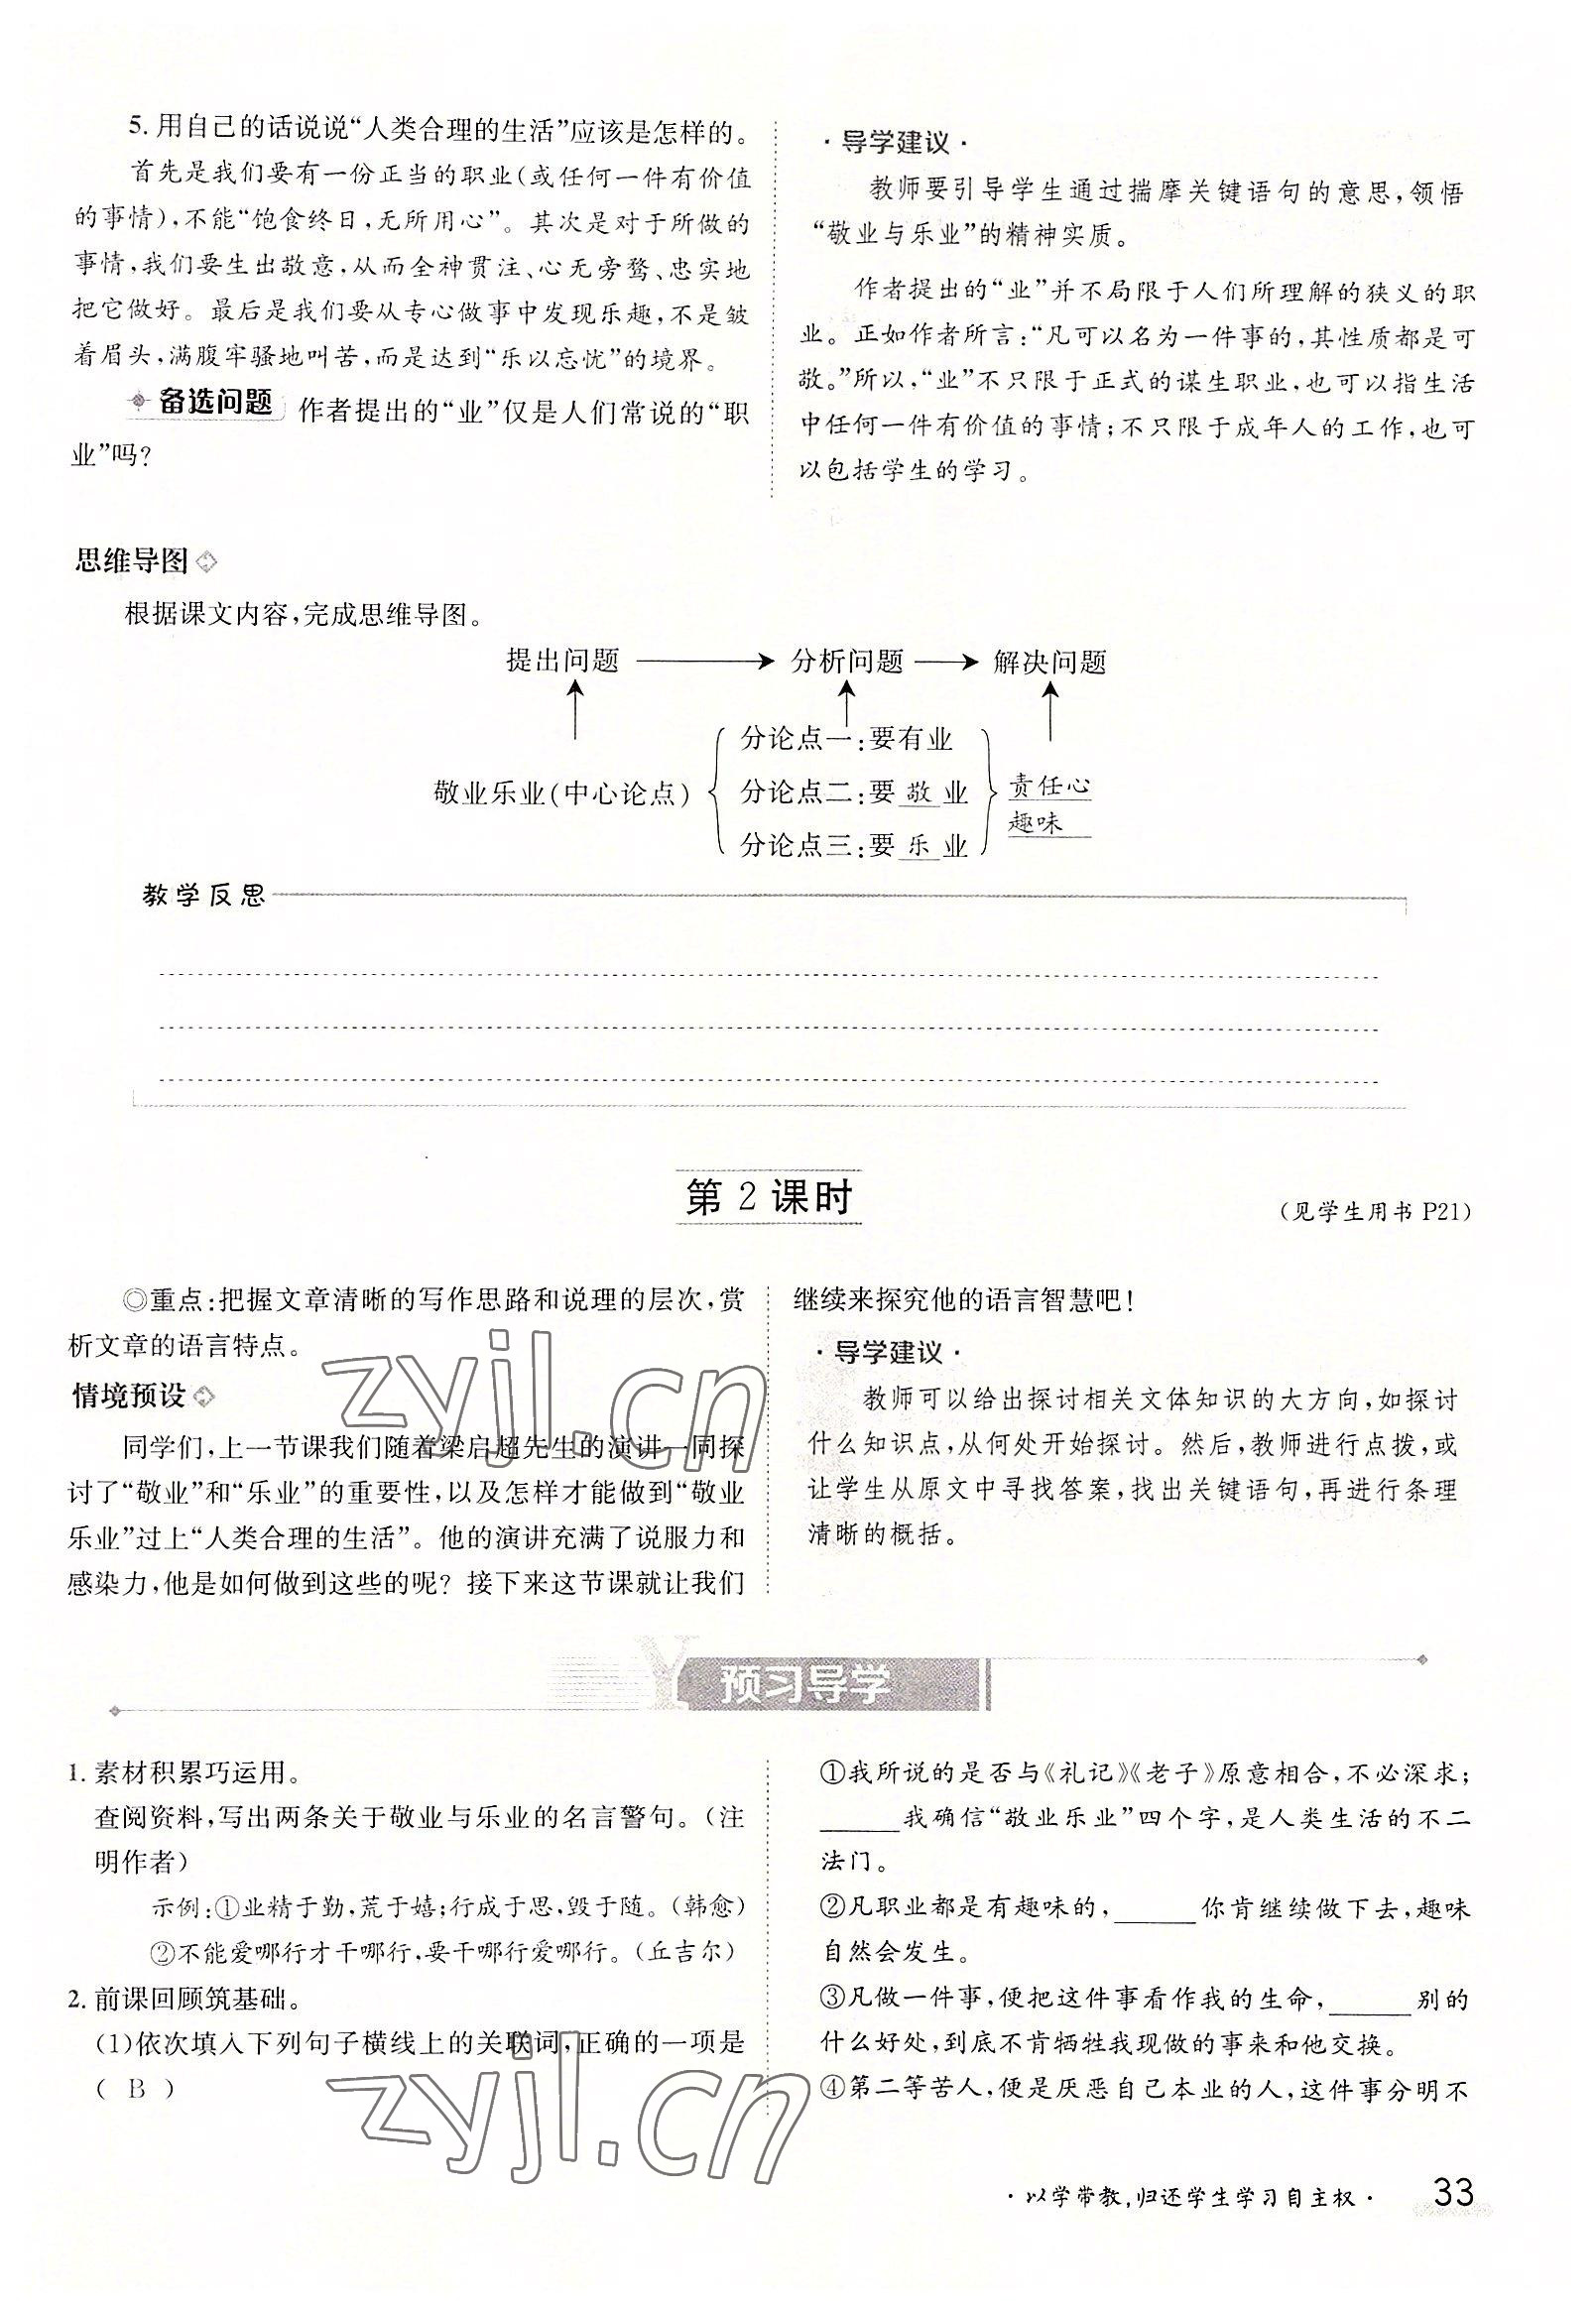 5. 用自己的话说说“人类合理的生活”应该是怎样的。
首先是我们要有一份正当的职业(或任何一件有价值
的事情),不能“饱食终日,无所用心”。其次是对于所做的
事情,我们要生出敬意,从而全神贯注、心无旁骛、忠实地
把它做好。最后是我们要从专心做事中发现乐趣,不是皱
着眉头,满腹牢骚地叫苦,而是达到“乐以忘忧”的境界。
备选问题 作者提出的“业”仅是人们常说的“职
业”吗?
·导学建议·
教师要引导学生通过揣摩关键语句的意思,领悟
“敬业与乐业”的精神实质。
作者提出的“业”并不局限于人们所理解的狭义的职
业。正如作者所言:“凡可以名为一件事的,其性质都是可
敬。”所以,“业”不只限于正式的谋生职业,也可以指生活
中任何一件有价值的事情;不只限于成年人的工作,也可
以包括学生的学习。
思维导图
根据课文内容,完成思维导图。
提出问题 → 分析问题 → 解决问题
分论点一:要有业
敬业乐业(中心论点) 分论点二:要 敬 业 责任心
趣味
分论点三:要 乐 业
教学反思
第 2 课时
(见学生用书 P21)
◎重点:把握文章清晰的写作思路和说理的层次,赏
析文章的语言特点。
情境预设
同学们,上一节课我们随着梁启超先生的演讲一同探
讨了“敬业”和“乐业”的重要性,以及怎样才能做到“敬业
乐业”过上“人类合理的生活”。他的演讲充满了说服力和
感染力,他是如何做到这些的呢? 接下来这节课就让我们
继续来探究他的语言智慧吧!
·导学建议·
教师可以给出探讨相关文体知识的大方向,如探讨
什么知识点,从何处开始探讨。然后,教师进行点拨,或
让学生从原文中寻找答案,找出关键语句,再进行条理
清晰的概括。
zyjl.cn
Y 预习导学
1. 素材积累巧运用。
查阅资料,写出两条关于敬业与乐业的名言警句。(注
明作者)
示例:①业精于勤,荒于嬉;行成于思,毁于随。(韩愈)
②不能爱哪行才干哪行,要干哪行爱哪行。(丘吉尔)
2. 前课回顾筑基础。
(1)依次填入下列句子横线上的关联词,正确的一项是
( B )
①我所说的是否与《礼记》《老子》原意相合,不必深求;
______我确信“敬业乐业”四个字,是人类生活的不二
法门。
②凡职业都是有趣味的,______你肯继续做下去,趣味
自然会发生。
③凡做一件事,便把这件事看作我的生命,______别的
什么好处,到底不肯牺牲我现做的事来和他交换。
④第二等苦人,便是厌恶自己本业的人,这件事分明不
zyjl.cn
·以学带教,归还学生学习自主权· 33